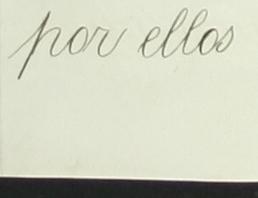 por ellos